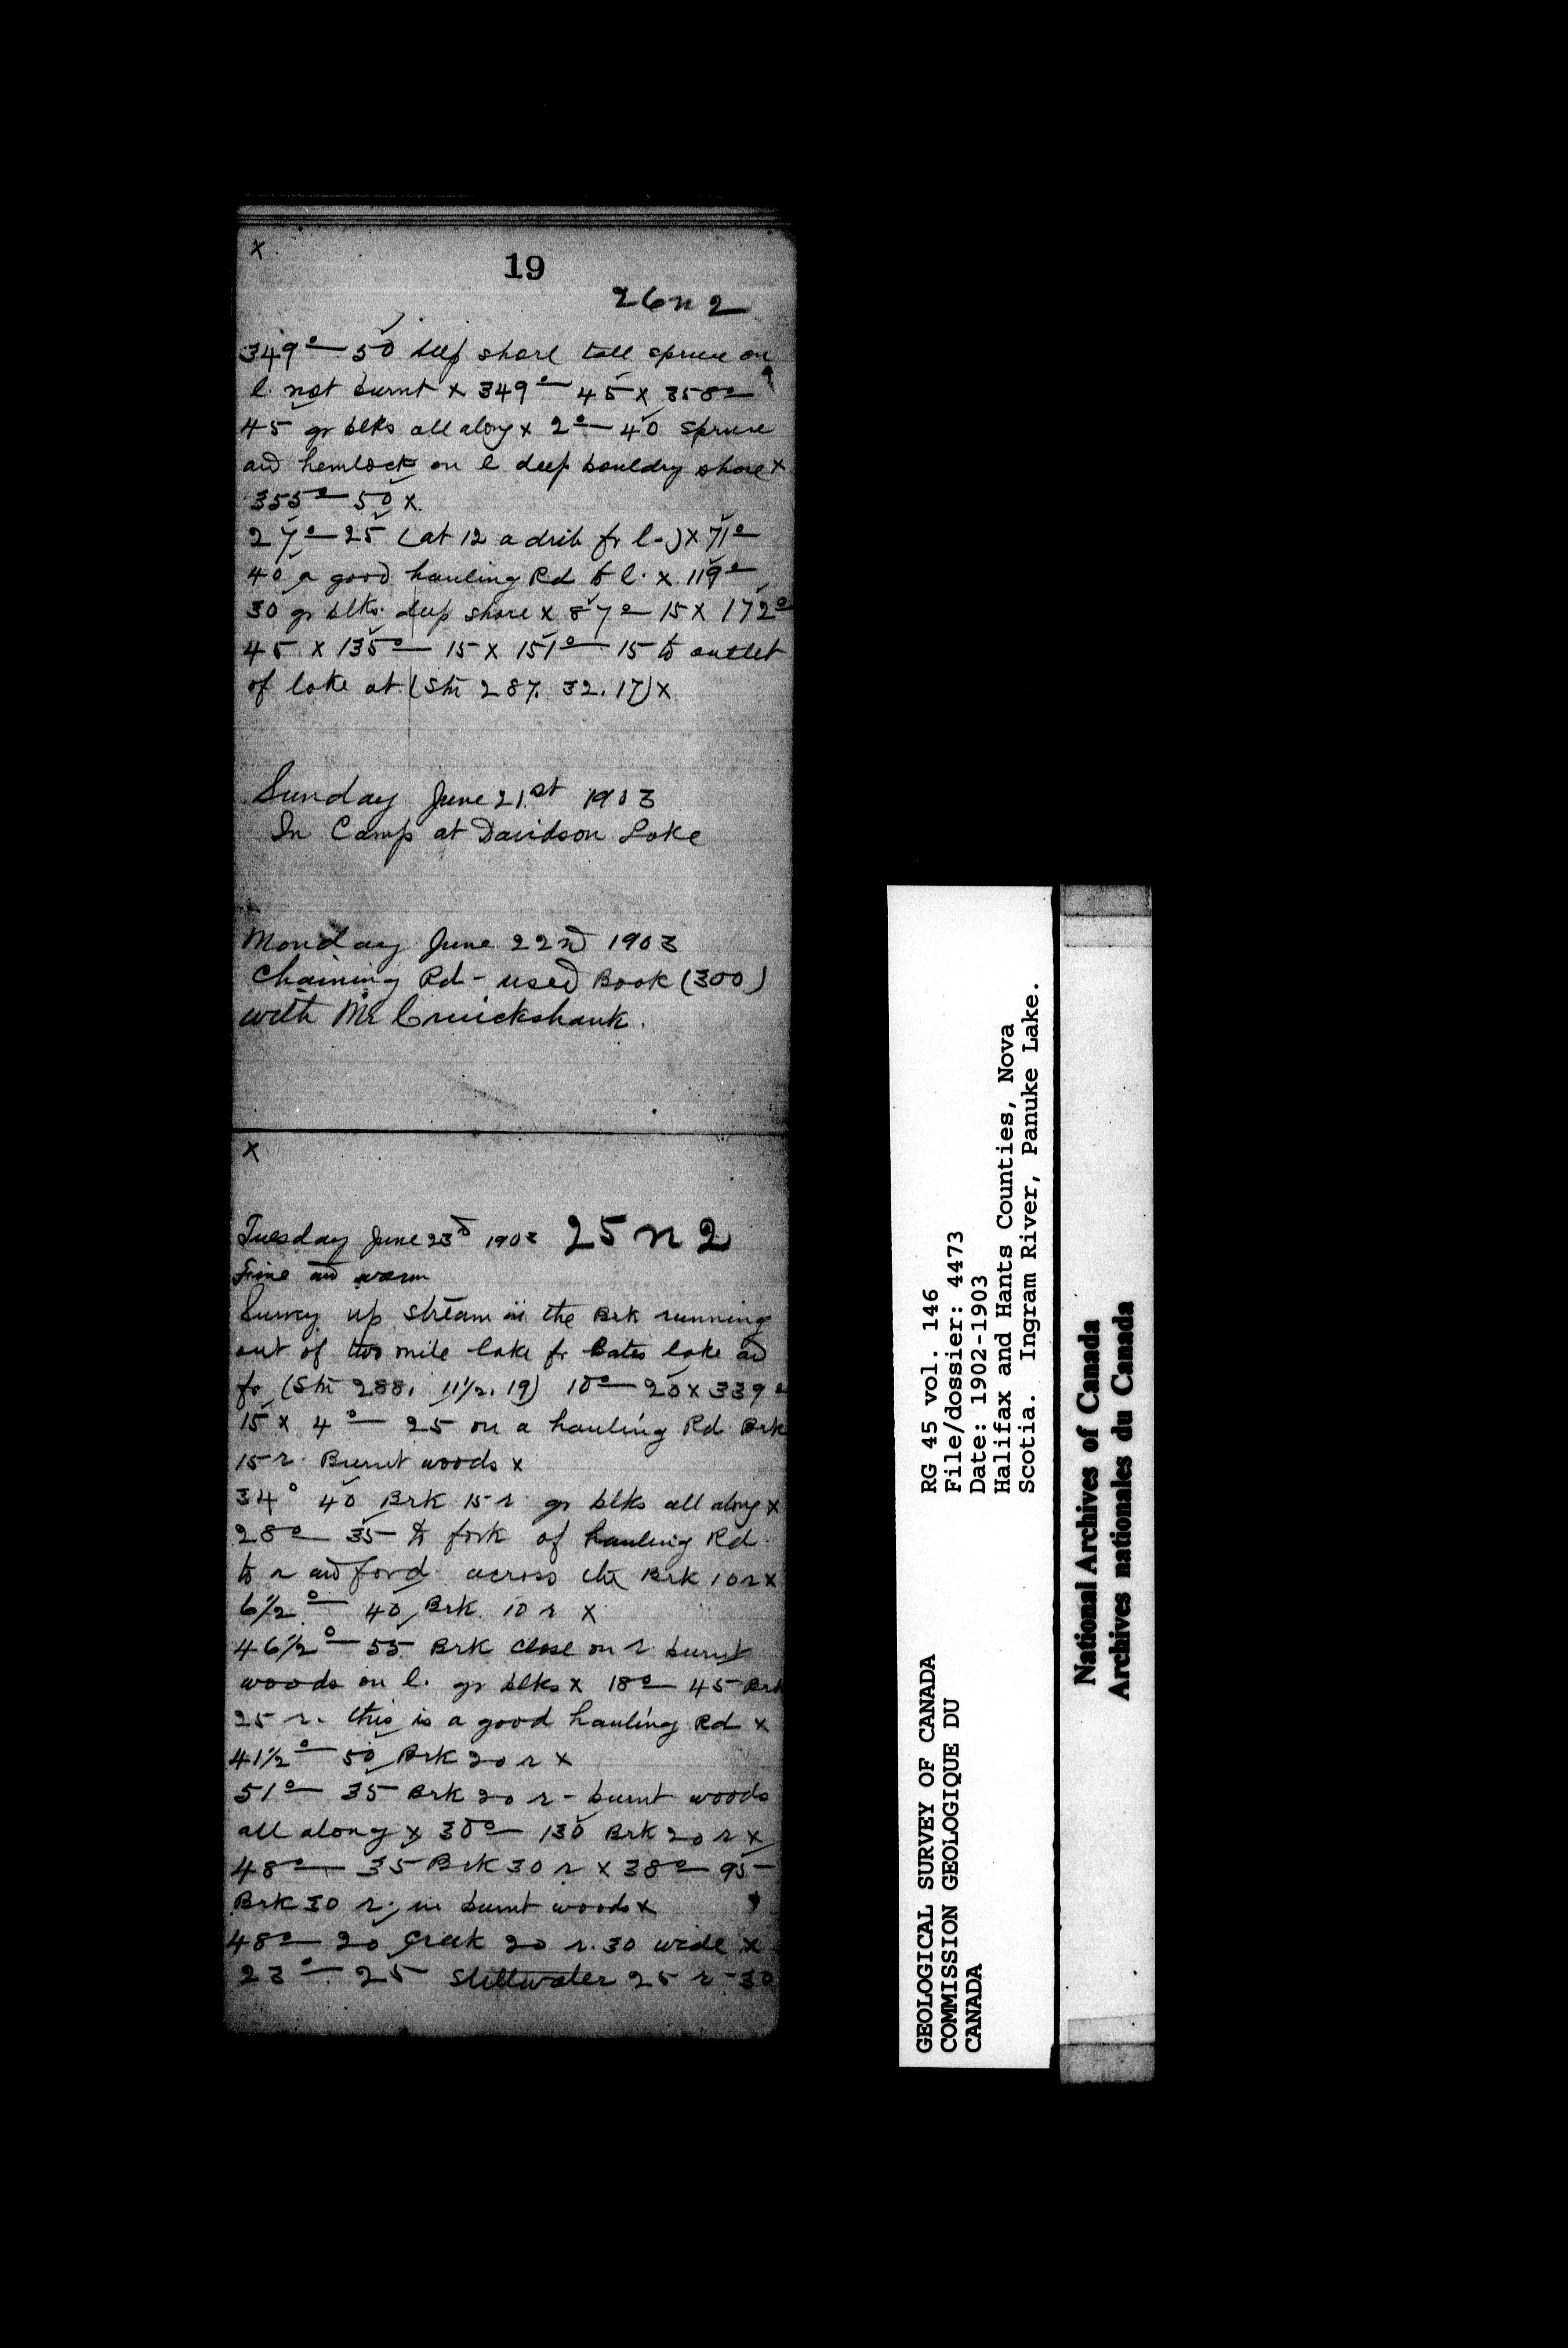 x
19
26 n 2
349° — 50 deep shore tall spruce on
l. not burnt x 349° — 45 x 358° —
45 gr blks all along x 2° — 40 spruce
and hemlock on l deep bouldry shore x
355° — 50 x
27° — 25 (at 12 a drib fr l-) x 71° —
40 a good hauling Rd to l. x 119° —
30 gr blks. deep shore x 87° — 15 x 172°
45 x 135° — 15 x 151° — 15 to outlet
of lake at (Stn 287. 32. 17) x
Sunday June 21st 1903
In Camp at Davidson Lake
Monday June 22nd 1903
Chaining Rd - used Book (300)
with Mr Cruickshank.
x
Tuesday June 23rd 1903 25 n 2
Fine and warm
Survey up stream in the Brk running
out of two mile lake fr Bates lake and
fr (Stn 288. 11 1/2. 19) 10° — 20 x 339°
15 x 4° — 25 on a hauling Rd Brk
15 r. Burnt woods x
34° 40 Brk 15 r. gr blks all along x
28° — 35 to fork of hauling Rd
to r and ford across the Brk 10 r x
6 1/2° — 40 Brk. 10 r x
46 1/2° — 55 Brk close on r. burnt
woods on l. gr blks x 18° — 45 Brk
25 r. this is a good hauling Rd x
41 1/2° — 50 Brk 20 r x
51° — 35 Brk 20 r - burnt woods
all along x 30° — 130 Brk 20 r x
48° — 35 Brk 30 r x 38° — 95 —
Brk 30 r. in burnt woods x
48° — 20 Creek 20 r. 30 wide x
23° — 25 Stillwater 25 r - 30
GEOLOGICAL SURVEY OF CANADA
COMMISSION GEOLOGIQUE DU
CANADA
RG 45 vol. 146
File/dossier: 4473
Date: 1902-1903
Halifax and Hants Counties, Nova
Scotia. Ingram River, Panuke Lake.
National Archives of Canada
Archives nationales du Canada